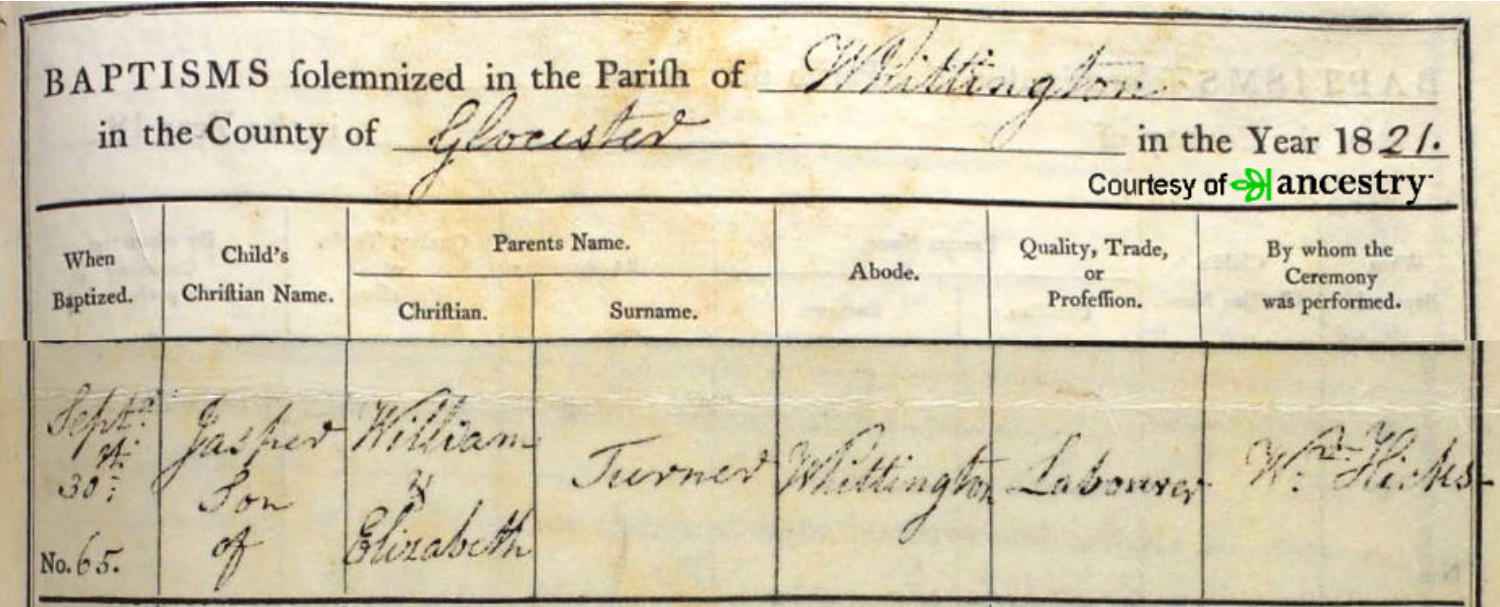 BAPTISMS ſolemnized in the Pariſh of Whittington
in the County of Glocester in the Year 1821.
Courtesy of ancestry
When Baptized.
Child's Chriſtian Name.
Parents Name.
Chriſtian.
Surname.
Abode.
Quality, Trade, or Profeſſion.
By whom the Ceremony was performed.
Septr.
30th
No. 65.
Jasper
Son
of
William
&
Elizabeth
Turner
Whittington
Labourer
Wm. Hicks